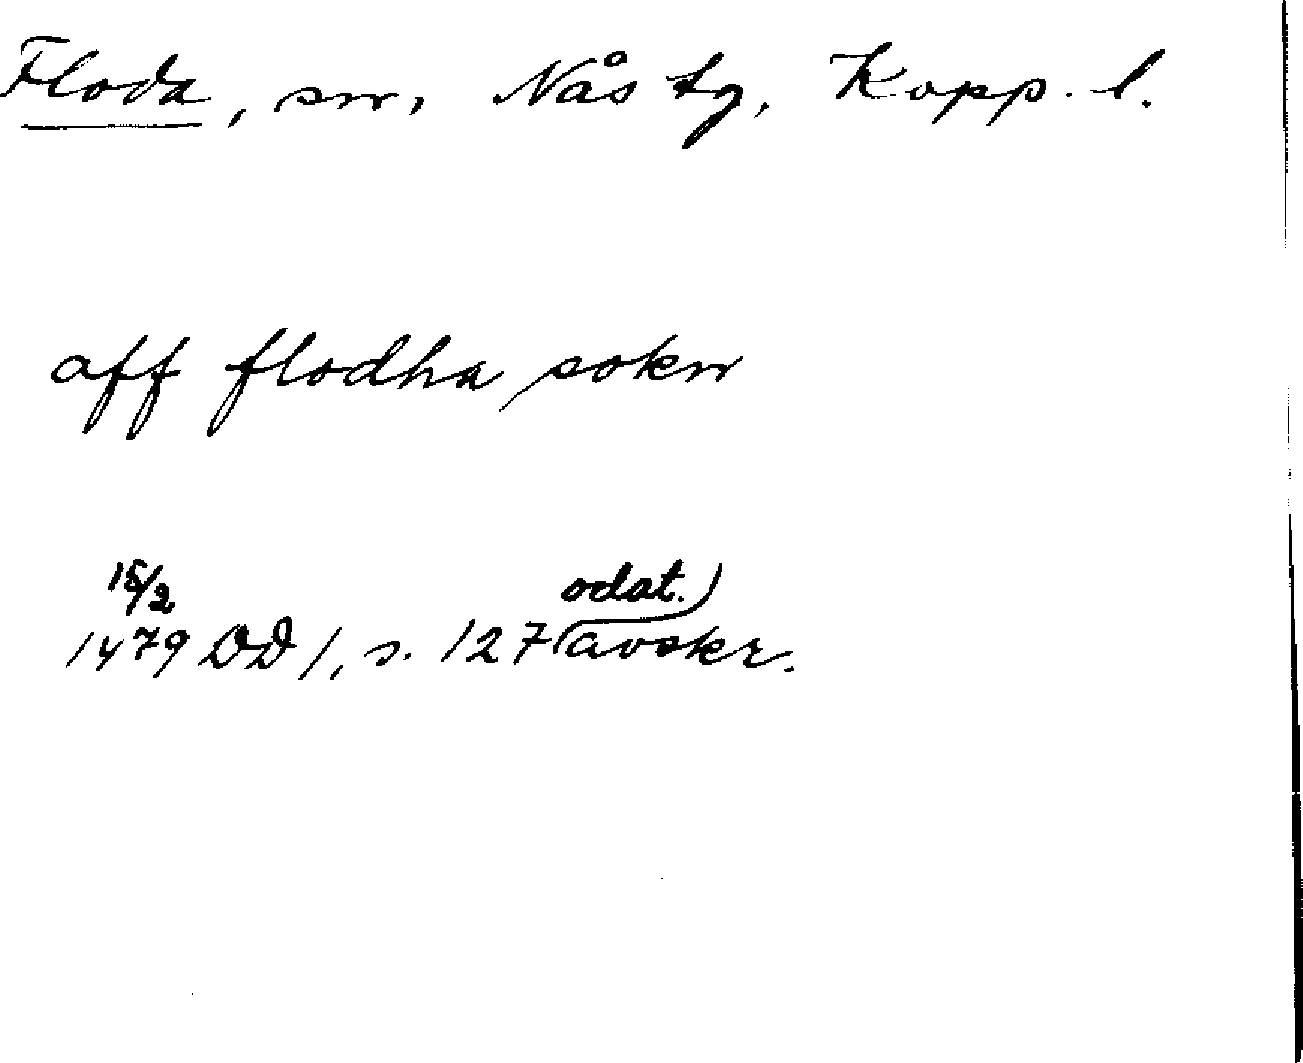 Floda, sn, Nås tg, Kopp. l.
aff flodha sokn
15/2 odat.)
1479 DD 1, s. 127 (avskr.